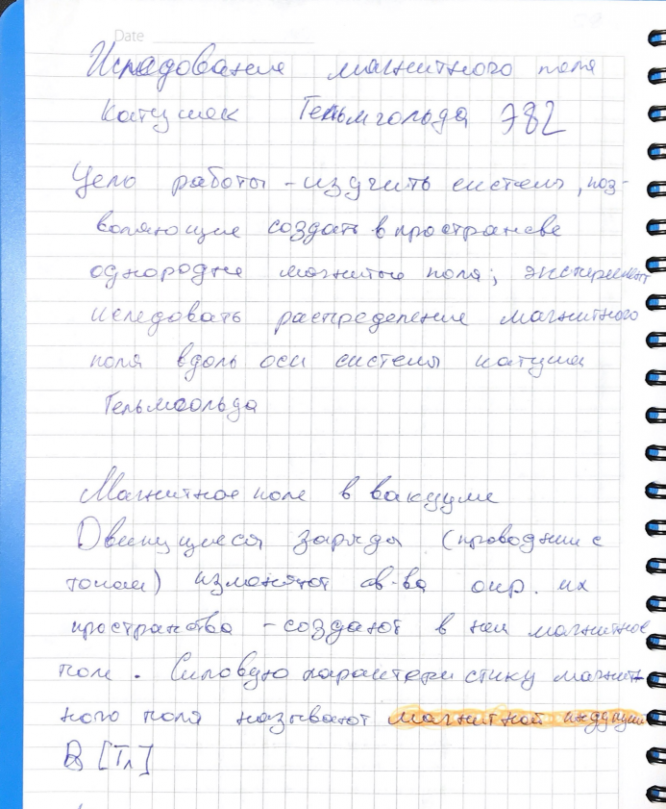 Date
Исследование магнитного поля
Катушек Гельмгольда Э82
Цель работы – изучить системы, поз-
воляющие создать в пространсве
однородные магнитые поля; эксперимент
иследовать распределение магнитного
поля вдоль оси системы катушек
Гельмгольда
Магнитное поле в вакууме
Движущиеся заряды (проводник с
током) изменяют св-ва окр. их
пространства – создают в нем магнитное
поле. Силовую характеристику магнит-
ного поля называют магнитной индукции
B [Тл]